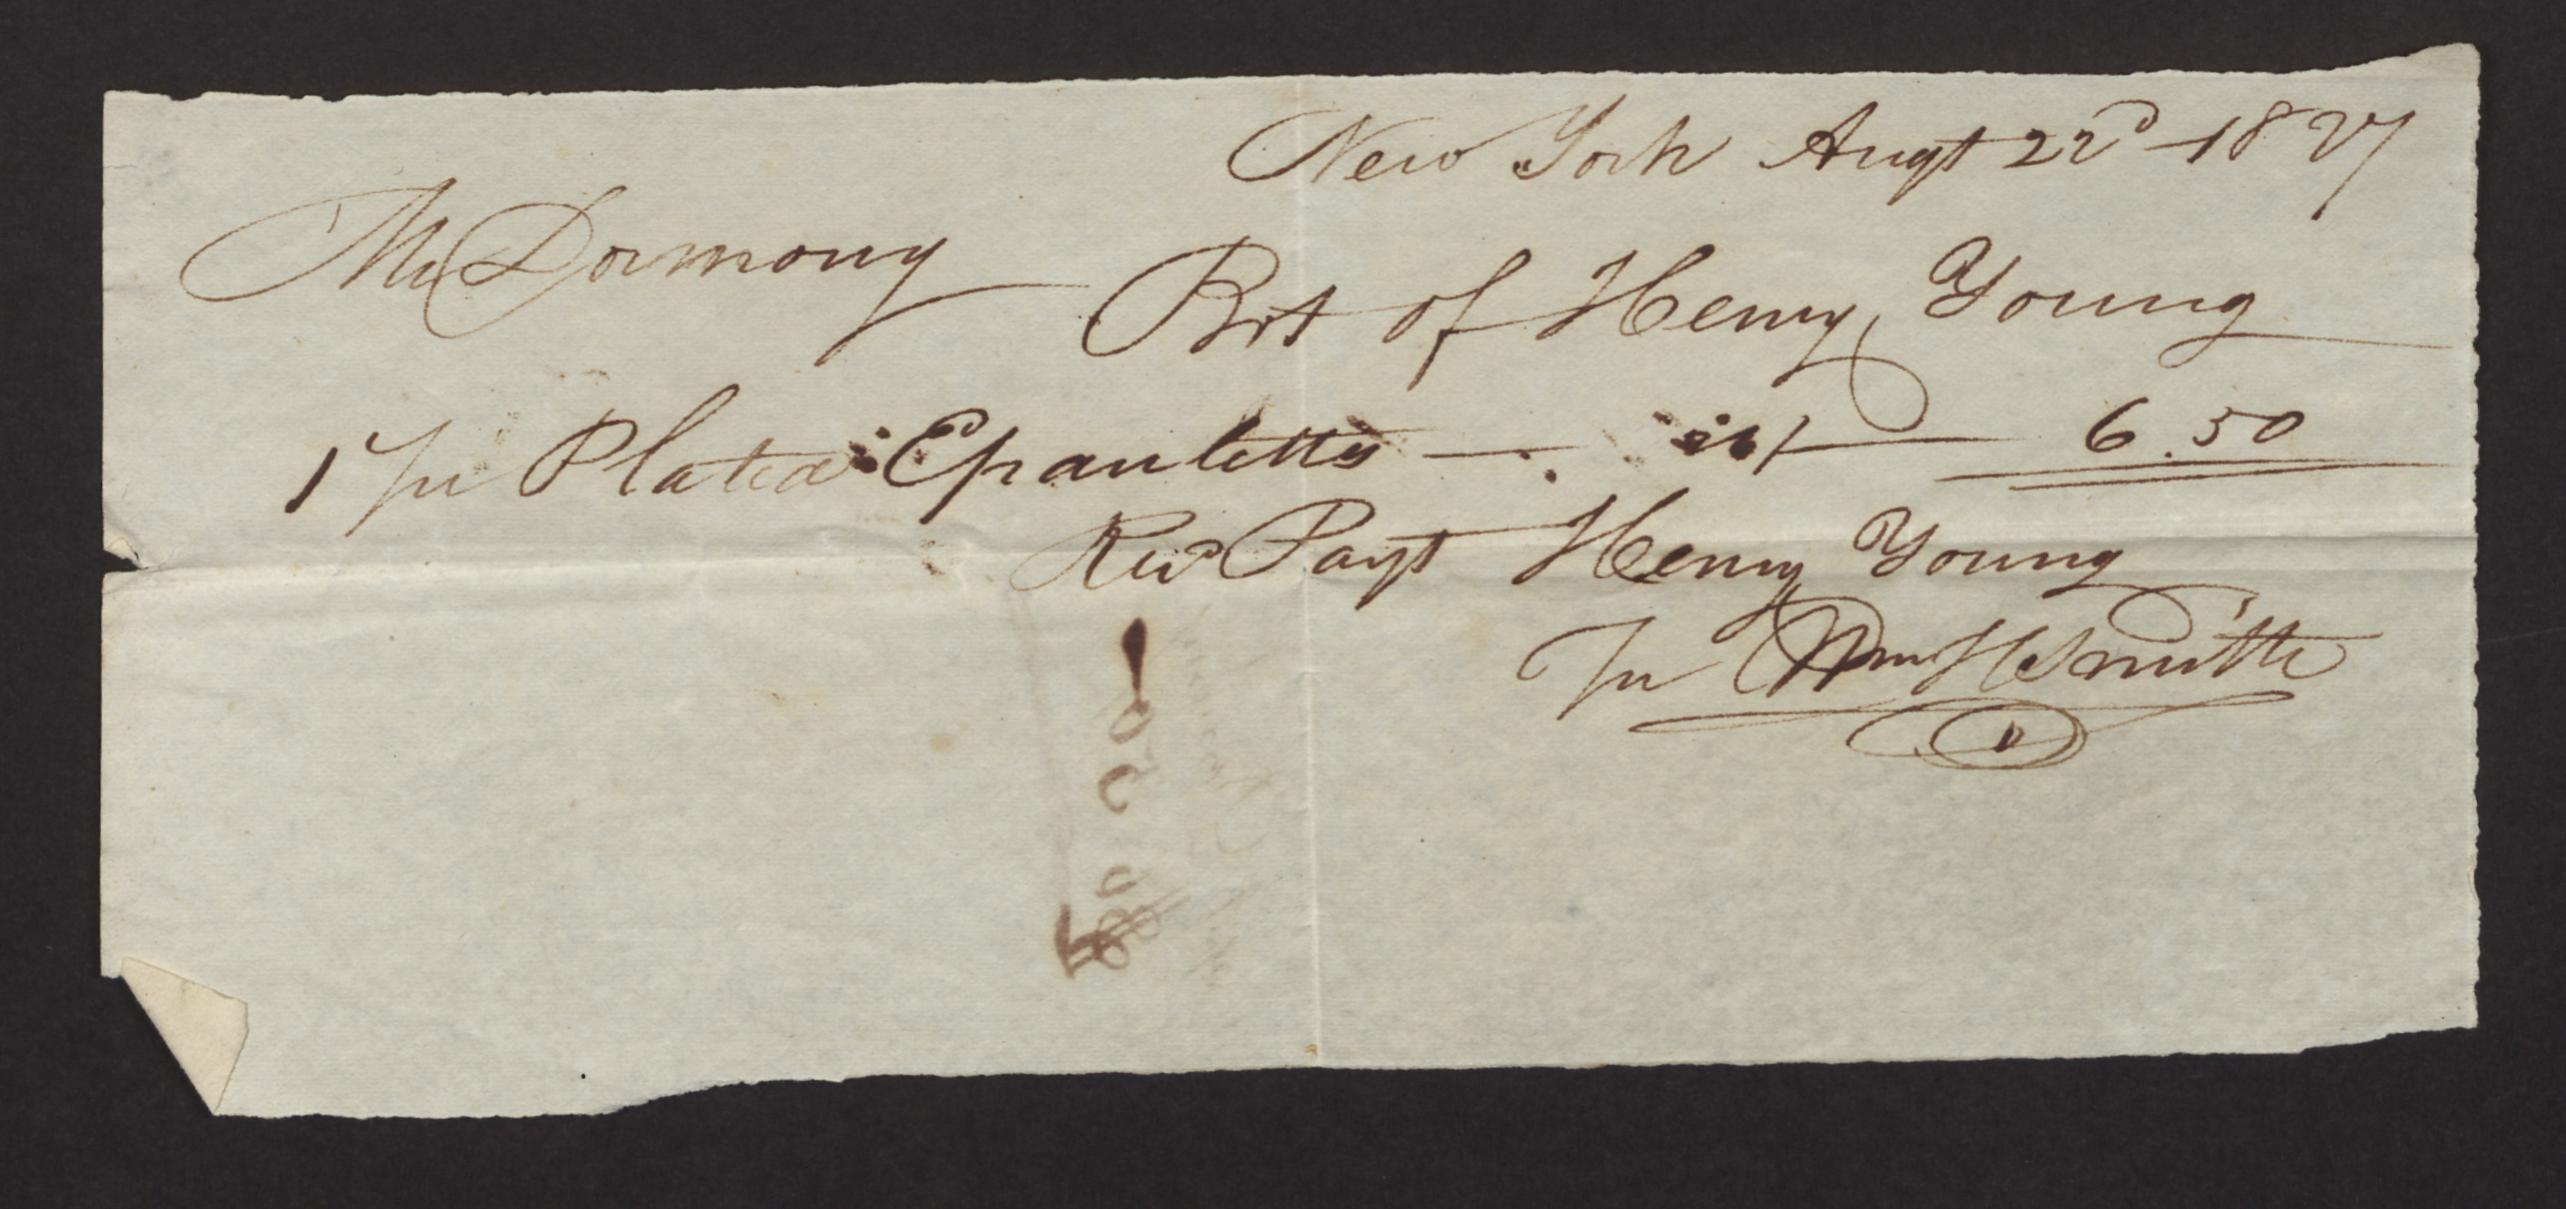 New York Augt 22d 1827
Mr Dormony
Bot of Henry Young
1 pr Plated Epauletts — 6.50
Recd Payt Henry Young
Pr Wm H Smith